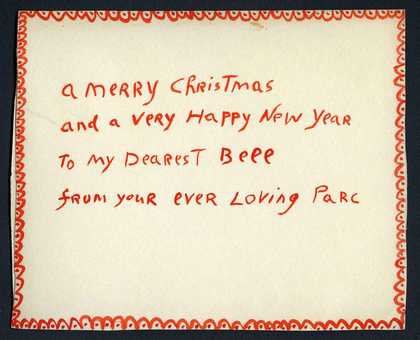 a merry Christmas
and a very Happy New Year
To my Dearest Beee
frum your ever Loving Parc